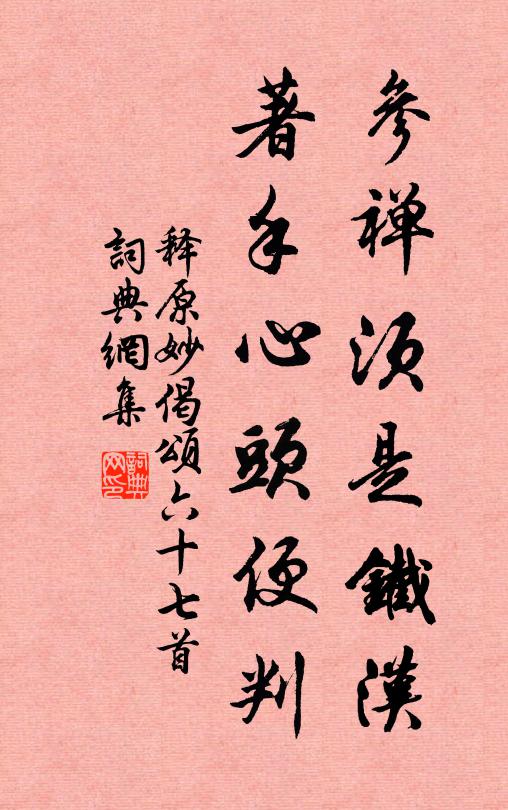 參禅須是鐵漢
著手心頭便判
释原妙偈頌六十七首
詞典網集
詞典網印